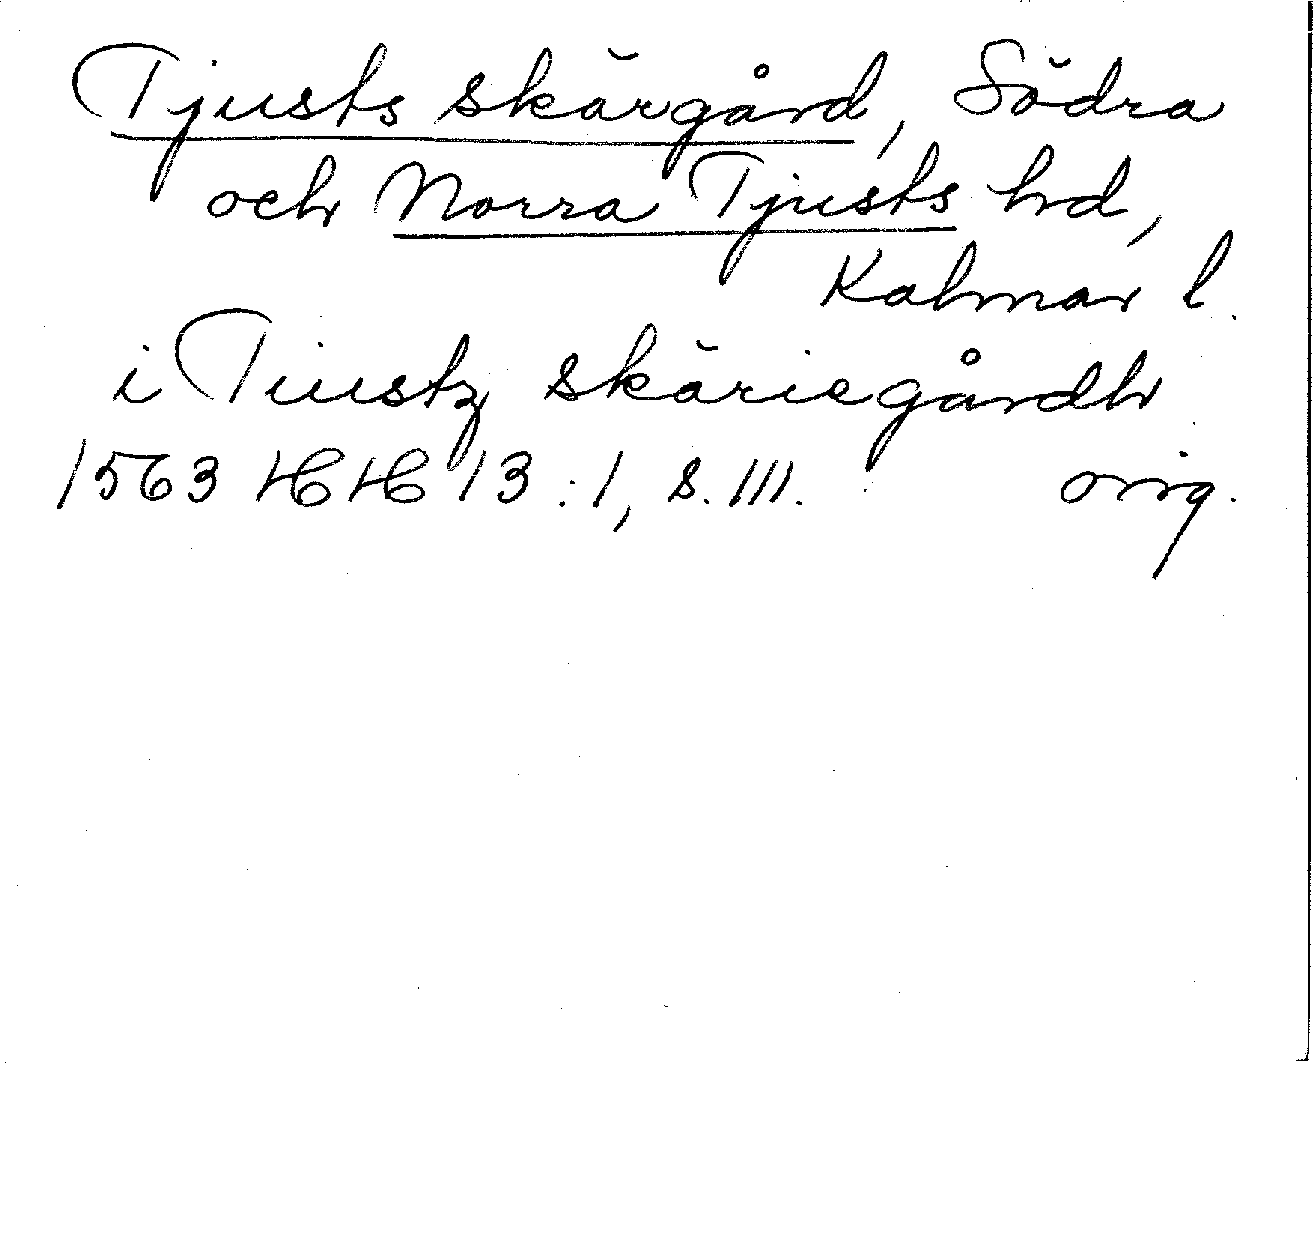 Tjusts skärgård, Södra
och Norra Tjusts hd,
Kalmar l.
i Tiustz skäriegårdh
1563 HH 13:1, s. 111. orig.